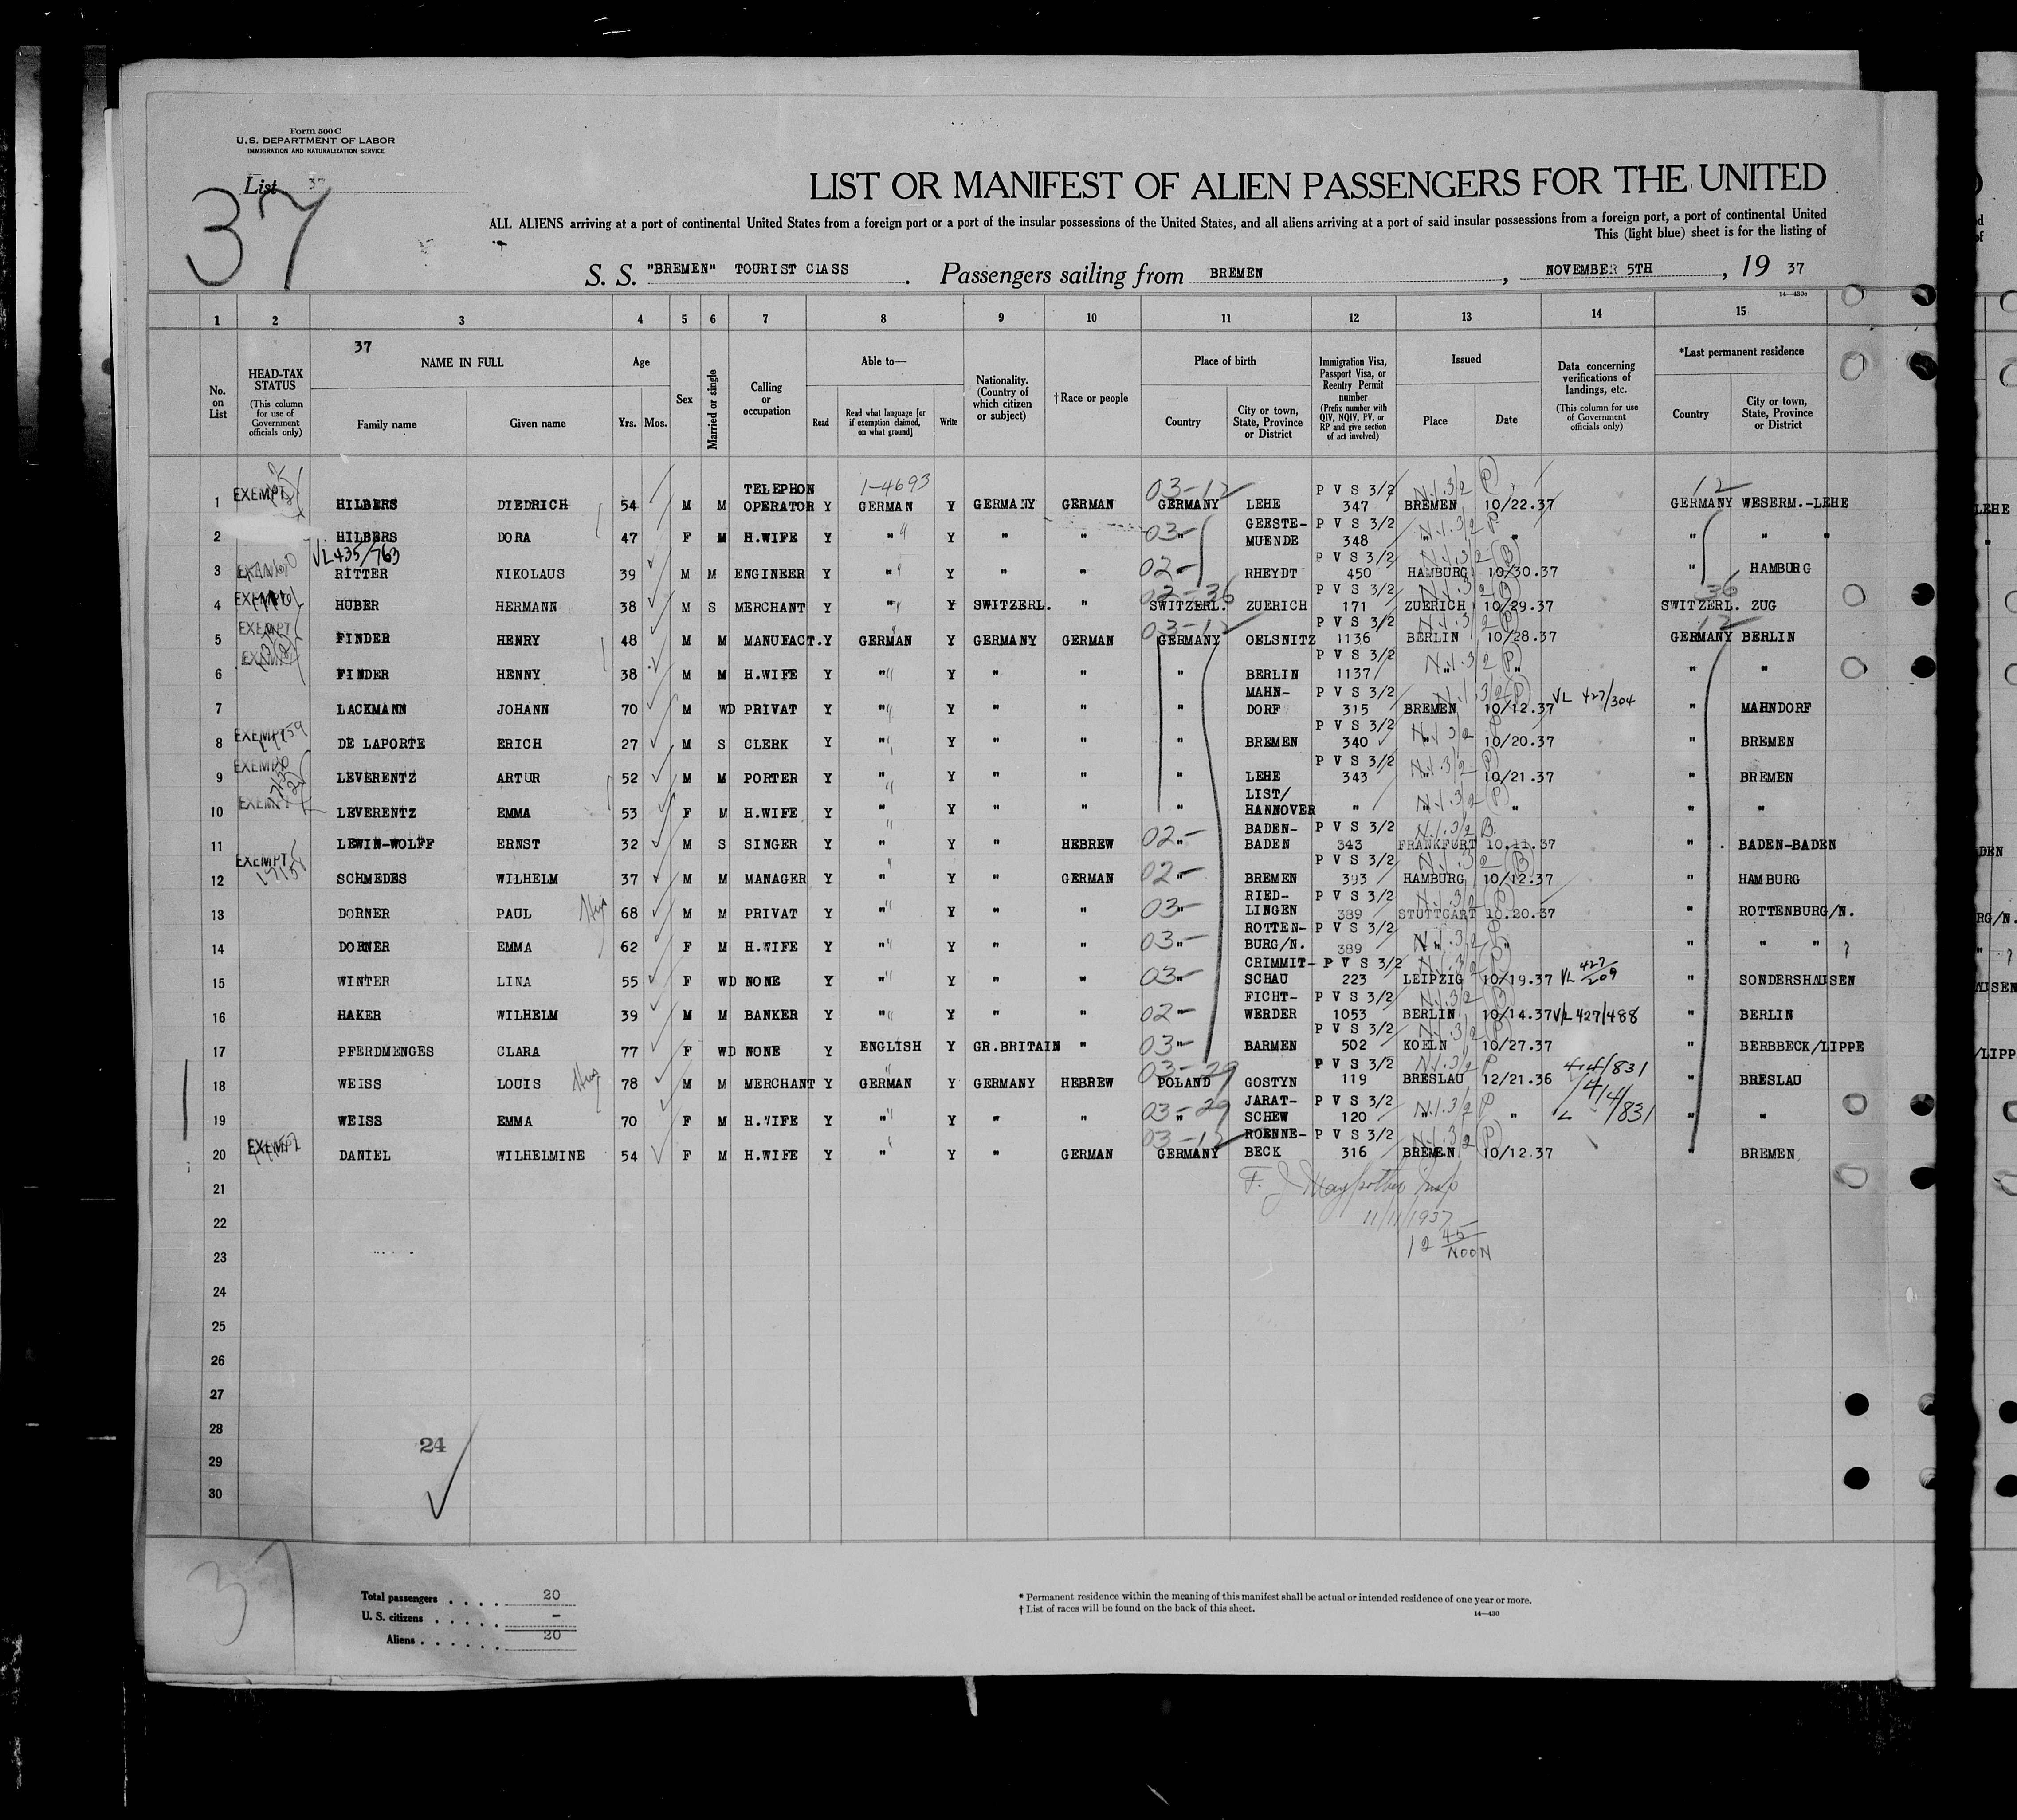 Form 500 C
U.S. DEPARTMENT OF LABOR
IMMIGRATION AND NATURALIZATION SERVICE
List 37
37
LIST OR MANIFEST OF ALIEN PASSENGERS FOR THE UNITED
ALL ALIENS arriving at a port of continental United States from a foreign port or a port of the insular possessions of the United States, and all aliens arriving at a port of said insular possessions from a foreign port, a port of continental United
This (light blue) sheet is for the listing of
S. S. "BREMEN" TOURIST CLASS. Passengers sailing from BREMEN, NOVEMBER 5TH, 19 37
14—430c
1 2 3 4 5 6 7 8 9 10 11 12 13 14 15
No. on List
HEAD-TAX STATUS (This column for use of Government officials only)
37
NAME IN FULL
Family name Given name
Age
Yrs. Mos.
Sex
Married or single
Calling or occupation
Able to—
Read Read what language [or if exemption claimed, on what ground] Write
Nationality. (Country of which citizen or subject)
†Race or people
Place of birth
Country City or town, State, Province or District
Immigration Visa, Passport Visa, or Reentry Permit number (Prefix number with QIV, NQIV, PV, or RP and give section of act involved)
Issued
Place Date
Data concerning verifications of landings, etc. (This column for use of Government officials only)
*Last permanent residence
Country City or town, State, Province or District
1-4693 03-12 12
1 EXEMPT HILBERS DIEDRICH 54 M M TELEPHON OPERATOR Y GERMAN Y GERMANY GERMAN GERMANY LEHE P V S 3/2 347 BREMEN 10/22.37 GERMANY WESERM.-LEHE
2 HILBERS DORA 47 F M H.WIFE Y " Y " " 03- " GEESTE-MUENDE P V S 3/2 348 " " " " "
VL 435/763
3 RITTER NIKOLAUS 39 M M ENGINEER Y " Y " " 02- " RHEYDT P V S 3/2 450 HAMBURG 10/30.37 " HAMBURG
4 EXEMPT HUBER HERMANN 38 M S MERCHANT Y " Y SWITZERL. " 02-36 SWITZERL. ZUERICH P V S 3/2 171 ZUERICH 10/29.37 36 SWITZERL. ZUG
5 EXEMPT FINDER HENRY 48 M M MANUFACT. Y GERMAN Y GERMANY GERMAN 03-12 GERMANY OELSNITZ P V S 3/2 1136 BERLIN 10/28.37 12 GERMANY BERLIN
6 EXEMPT FINDER HENNY 38 M M H.WIFE Y " Y " " " BERLIN P V S 3/2 1137 " " " "
7 LACKMANN JOHANN 70 M WD PRIVAT Y " Y " " " MAHN-DORF P V S 3/2 315 BREMEN 10/12.37 VL 427/304 " MAHNDORF
8 EXEMPT DE LAPORTE ERICH 27 M S CLERK Y " Y " " " BREMEN P V S 3/2 340 " 10/20.37 " BREMEN
9 EXEMPT LEVERENTZ ARTUR 52 M M PORTER Y " Y " " " LEHE P V S 3/2 343 " 10/21.37 " BREMEN
10 EXEMPT LEVERENTZ EMMA 53 F M H.WIFE Y " Y " " " LIST/HANNOVER " " " " "
11 LEWIN-WOLFF ERNST 32 M S SINGER Y " Y " HEBREW 02- " BADEN-BADEN P V S 3/2 343 FRANKFURT 10.11.37 " BADEN-BADEN
12 EXEMPT SCHMEDES WILHELM 37 M M MANAGER Y " Y " GERMAN 02- " BREMEN P V S 3/2 393 HAMBURG 10/12.37 " HAMBURG
13 DORNER PAUL 68 M M PRIVAT Y " Y " " 03- " RIED-LINGEN P V S 3/2 389 STUTTGART 10.20.37 " ROTTENBURG/N.
14 DORNER EMMA 62 F M H.WIFE Y " Y " " 03- " ROTTEN-BURG/N. P V S 3/2 389 " " " " " ?
15 WINTER LINA 55 F WD NONE Y " Y " " 03- " CRIMMIT-SCHAU P V S 3/2 223 LEIPZIG 10/19.37 VL 427/209 " SONDERSHAUSEN
16 HAKER WILHELM 39 M M BANKER Y " Y " " 02- " FICHT-WERDER P V S 3/2 1053 BERLIN 10/14.37 VL 427/488 " BERLIN
17 PFERDMENGES CLARA 77 F WD NONE Y ENGLISH Y GR.BRITAIN " 03- " BARMEN P V S 3/2 502 KOELN 10/27.37 " BERBBECK/LIPPE
18 WEISS LOUIS 78 M M MERCHANT Y GERMAN Y GERMANY HEBREW 03-29 POLAND GOSTYN P V S 3/2 119 BRESLAU 12/21.36 414/831 " BRESLAU
19 WEISS EMMA 70 F M H.WIFE Y " Y " " 03-29 " JARAT-SCHEW P V S 3/2 120 " " 414/831 " "
20 EXEMPT DANIEL WILHELMINE 54 F M H.WIFE Y " Y " GERMAN 03-12 GERMANY ROENNE-BECK P V S 3/2 316 BREMEN 10/12.37 " BREMEN
21
22 11/11/1937
23 12 45 NOON
24
25
26
27
28
29
30
24
37
Total passengers . . . . 20
U. S. citizens . . . . . –
Aliens . . . . . . 20
* Permanent residence within the meaning of this manifest shall be actual or intended residence of one year or more.
† List of races will be found on the back of this sheet.
14—430